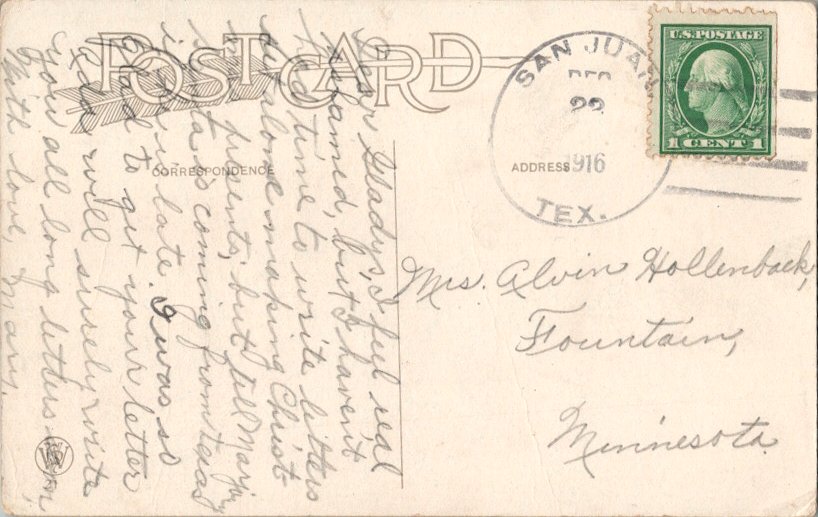 POST CARD
CORRESPONDENCE
ADDRESS
SAN JUAN
DEC
22
1916
TEX.
U.S. POSTAGE
1 CENT 1
Dear Gladys, I feel real
ashamed, but I haven't
had time to write letters
let alone making Christ-
presents, but tell Marjory
is coming from Texas
late. I was so
glad to get your letter
and will surely write
you all long letters
With love, Mary.
Mrs. Alvin Hollenback,
Fountain,
Minnesota.